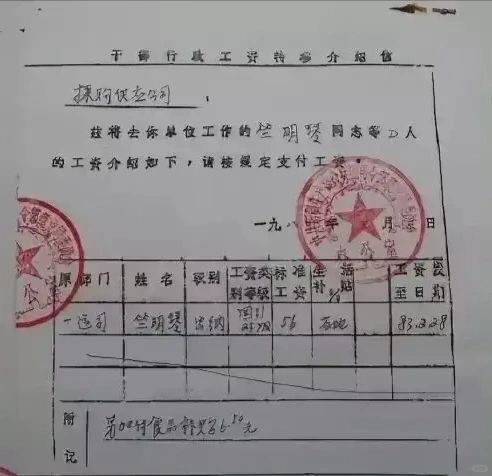 干部行政工资转移介绍信
采购供应公司：
兹将去你单位工作的竺明琴同志等 人
的工资介绍如下，请按规定支付工资。
一九八 年 月 日
原部门 姓名 职别 工资类别等级 标准工资 生活补贴 工资发至日期
一运司 竺明琴 出纳 56 83.2.28
附记
另加付食品补贴6.50元